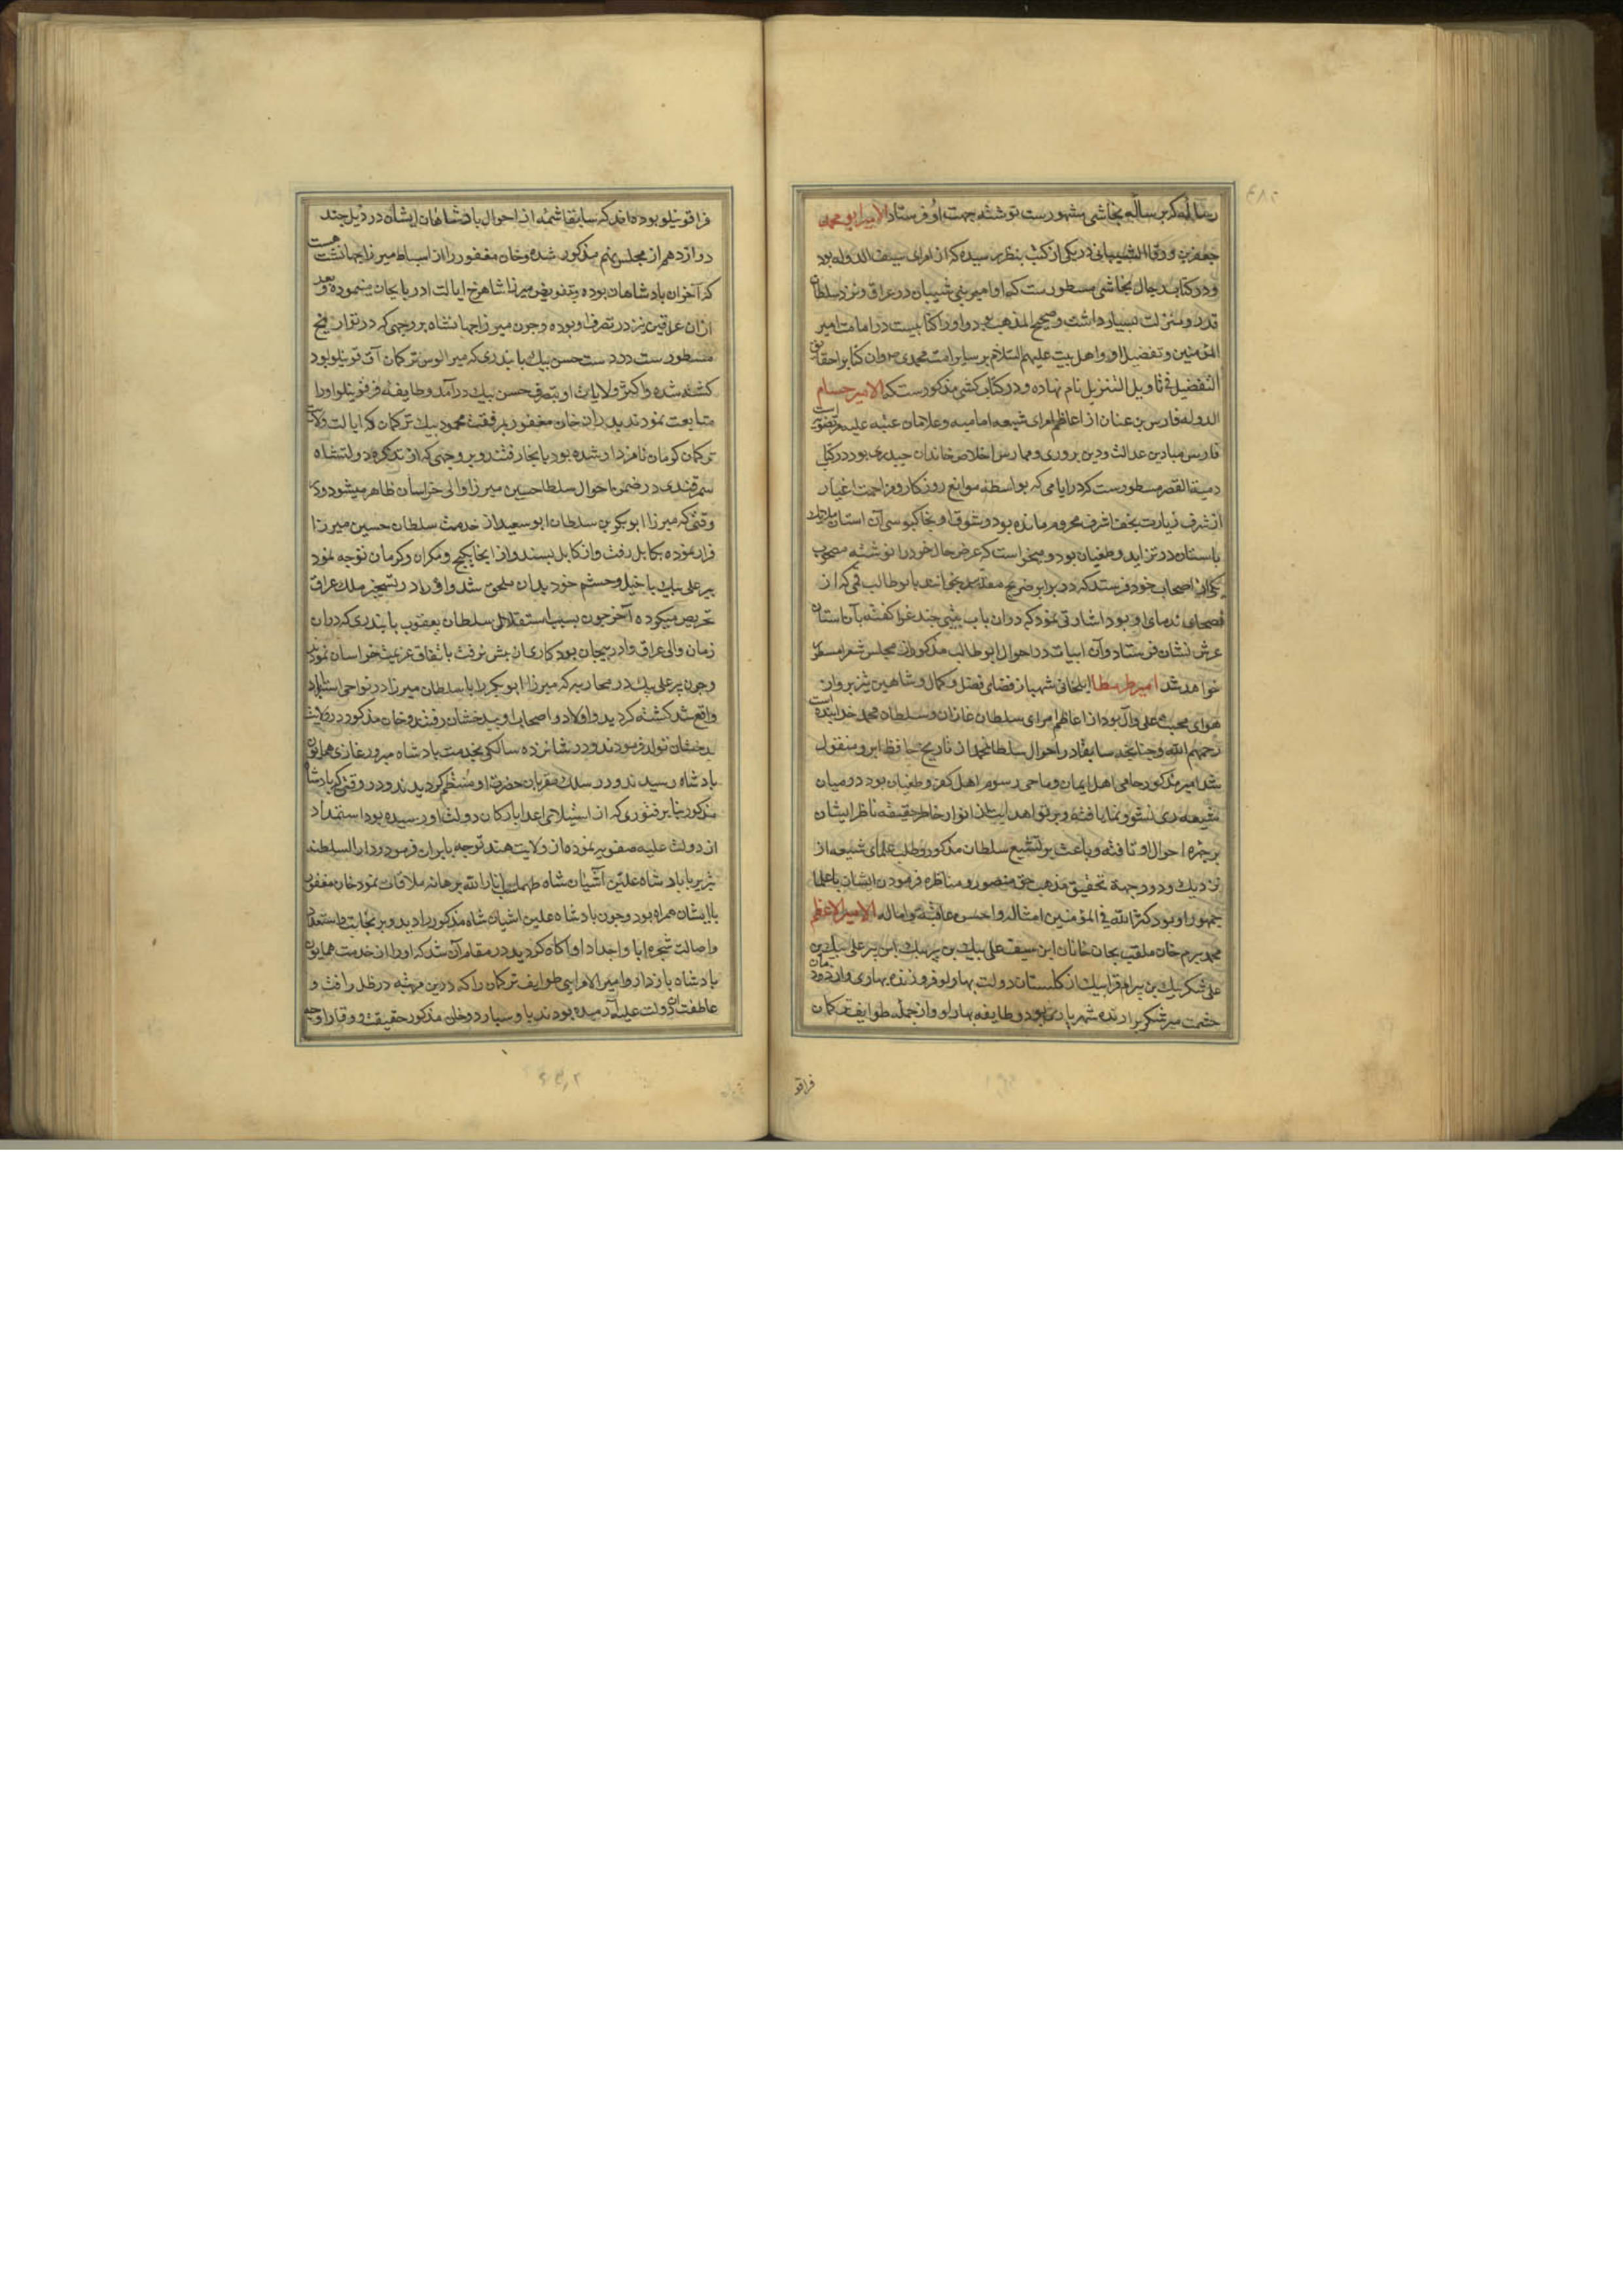 رساله که برساله نجاشی مشهورست نوشته جهت او فرستاد الامیر ابو محمد
جعفر بن ورقا الشیبانی در یکی از کتب بنظر رسیده که از امرای سیف الدوله بود
و در کتاب رجال نجاشی مسطورست که او امیر بنی شیبان در عراق و نزد سلطان
قدر و منزلت بسیار داشت و صحیح المذهب بود و او را کتابیست در امامت امیر
المؤمنین و تفضیل او و اهل بیت علیهم السلام بر سایر امت محمدی و آن کتابرا حقایق
التفضیل فی تاویل التنزیل نام نهاده و در کتاب کشی مذکورست که الامیر حسام
الدوله فارس بن عنان از اعاظم امرای شیعه امامیه و غلامان عتبه علیه مرتضویست
فارس میادین عدالت و دین پروری و ممارس اخلاص خاندان حیدری بود در کتاب
دمیة القصر مسطورست که در ایامی که بواسطه موانع روزکار و مزاحمت اغیار
از شرف زیارت نجف اشرف محروم مانده بود و شوق او بخاکبوسی آن استان ملایک
باستان در تزاید و طغیان بود و میخواست که عرض حال خود را نوشته مصحوب
یکی از اصحاب خود فرستد که در برابر ضریح مقدسه بخوانند بابو طالب قمی که از
فصحای ندمای او بود اشارتی نمود که در ان باب بیتی چند غرا کفته بآن استان
عرش نشان فرستاد و آن ابیات در احوال ابو طالب مذکور از مجلس شعرا مسطور
خواهد شد امیر طرمطا ایلخانی شهباز فضای فضل و کمال و شاهین تیز پروان
هوای محبت علی و آل بود از اعاظم امرای سلطان غازان و سلطان محمد خدابنده است
رحمهم الله و چنانچه سابقا در احوال سلطان محمد از تاریخ حافظ ابرو منقول
شد امیر مذکور حامی اهل ایمان و ماحی رسوم اهل کفر و طغیان بود و در میان
شیعه ری نشو و نما یافته و پرتو اهدایت از انوار خاطر حقیقه ناظر ایشان
بر چهره احوال او تافته و باعث بر تشیع سلطان مذکور و طلب علمای شیعه از
نزدیک و دور جهة تحقیق مذهب حق منصور و مناظره فرمودن ایشان با علما
جمهور او بود کثر الله فی المؤمنین امثاله و احسن عاقبته و اماله الامیر الاعظم
محمد بیرم خان ملقب بخان خانان ابن سیف علی بیک بن پیر بیک ابن پیر علی بیک بن
علی شکر بیک بن بیرام قرا بیک از کلستان دولت بهارلو فروزنده بهاری و از دودمان
حشمت میر شکر برازنده شهریاری بود و طایفه بهارلو از جمله طوایف ترکمان
قراقو
قراقوینلو بوده‌اند که سابقا شمه از احوال بادشاهان ایشان در ذیل جند
دوازدهم از مجلس هشتم مذکور شده و خان مغفور را از اسباط میرزا جهانشاهست
که آخران بادشاهان بوده و بتفویض میرزا شاهرخ ایالت اذربایجان مینموده و بعد
ازان عراقین نیز در تصرف او بوده و چون میرزا جهانشاه بر وجهی که در تواریخ
مسطورست در دست حسن بیک بایندری که میر الوس ترکمان آق قوینلو بود
کشته شده و اکثر ولایات او بتصرف حسن بیک درآمد و طایفه قراقوینلو او را
متابعت نمودند پدران خان مغفور برفقت محمود بیک ترکمان که ایالت ولایت
ترکمان کرمان نامزد او شده بود بانجا رفتند و بر وجهی که از تذکره دولتشاه
سمرقندی در ضمن احوال سلطان حسین میرزا والی خراسان ظاهر میشود در
وقتی که میرزا ابو بکر بن سلطان ابو سعید از خدمت سلطان حسین میرزا
فرار نموده بکابل رفت و از کابل بسند و از انجا بکیج و مکران و کرمان توجه نمود
پیر علی بیک با خیل و حشم خود بدان ملحق شد و او را در تسخیر ملک عراق
تحریص میکرده آخر چون بسبب استقلال سلطان یعقوب بایندری که دران
زمان والی عراق و اذربیجان بود کاری از پیش نرفت باتفاق عزیمت خراسان نمودند
و چون پیر علی بیک در محاربه که میرزا ابو بکر را با سلطان میرزا در نواحی استراباد
واقع شد کشته کردید و اولاد و اصحاب او ببدخشان رفتند و خان مذکور در ولایت
بدخشان تولد فرمودند و در شانزده سالکی بخدمت بادشاه مبرور غازی همایون
بادشاه رسیدند و در سلک مقربان حضرت او منتظم کردیدند و در وقتی که بادشاه
مذکور بنا بر فتوری که از استیلای اعدا بارکان دولت او رسیده بود استمداد
از دولت علیه صفویه نموده از ولایت هند توجه بایران فرمود و در دار السلطنه
تبریز با بادشاه علیین آشیان شاه طهماسب انار الله برهانه ملاقات نمود خان مغفور
با ایشان همراه بود و چون بادشاه علیین اشیان شاه مذکور را دید و بر نجابت و استعداد
و اصالت شجره ابا و اجداد او آکاه کردید در مقام آن شد که او را از خدمت همایون
بادشاه بازدارد و امیر الامرایی طوایف ترکمان را که درین مرتبه در ظل رافت و
عاطفت آن دولت علیه آرمیده بودند باو سپارد و خان مذکور حقیقت و وقار او چه